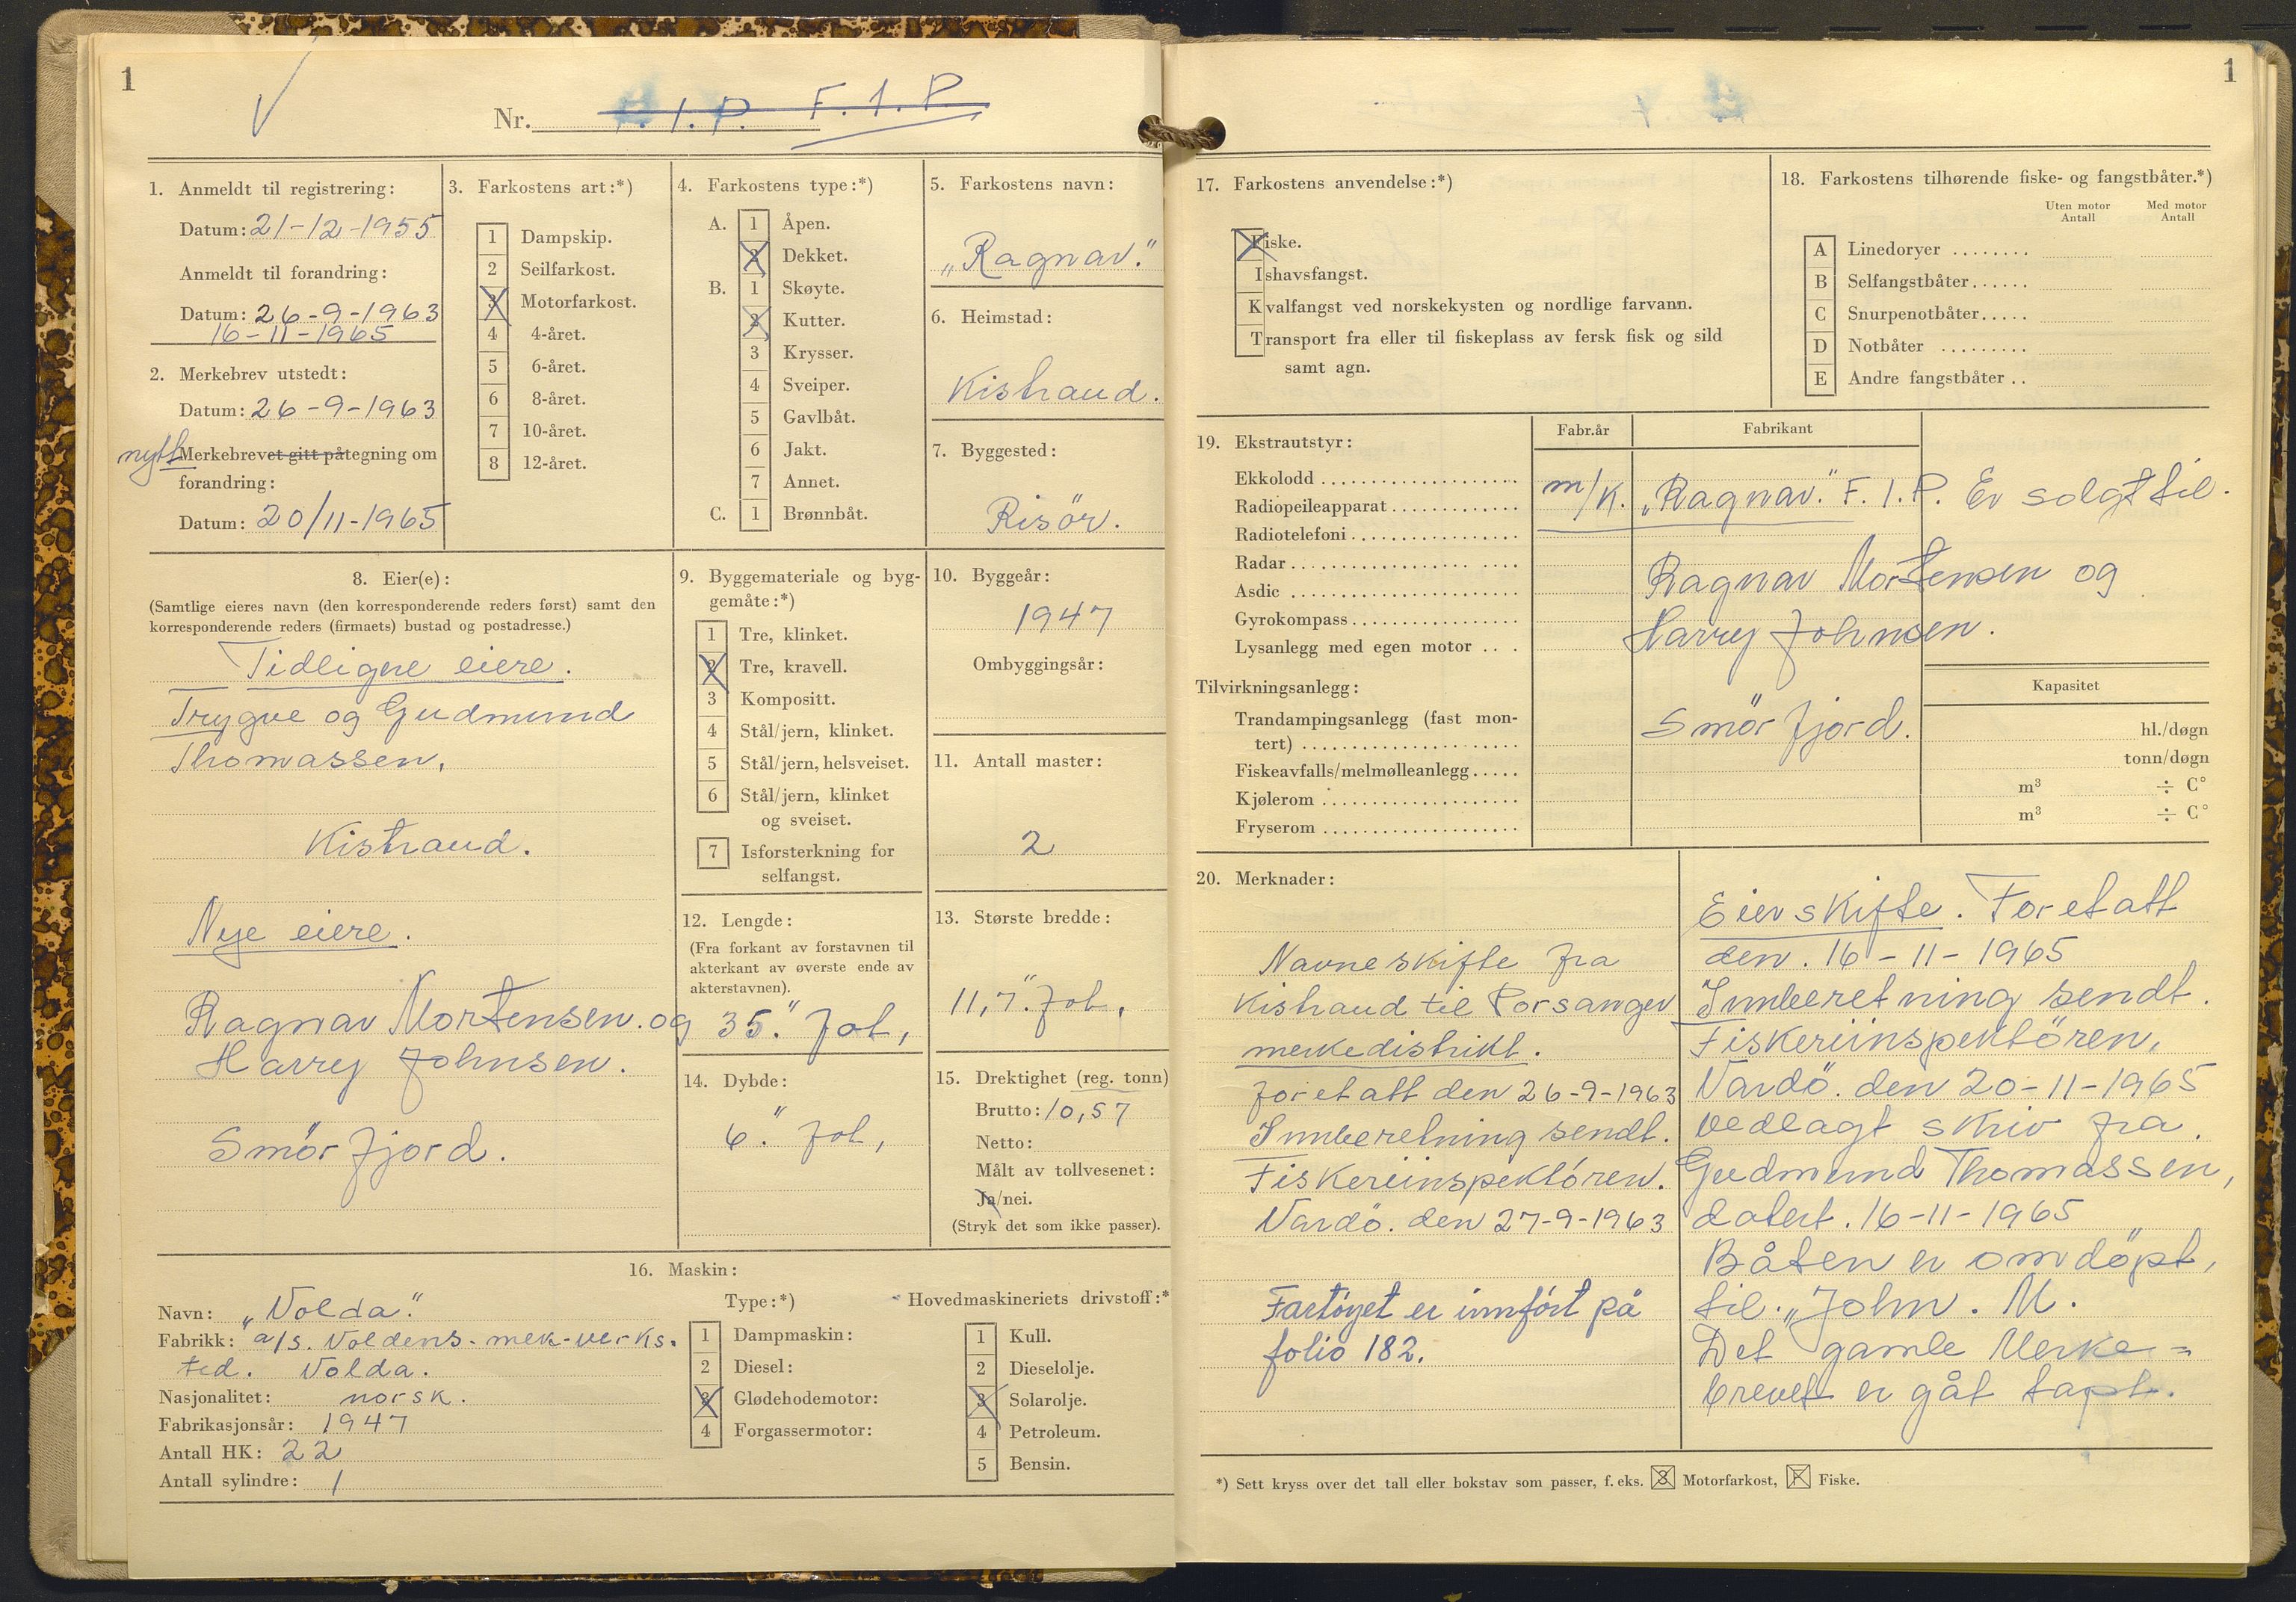 1
Nr. F. 1. P. F. 1. P.
1. Anmeldt til registrering:
Datum: 21-12-1955
Anmeldt til forandring:
Datum: 26-9-1963
16-11-1965
2. Merkebrev utstedt:
Datum: 26-9-1963
nytt Merkebrevet gitt påtegning om
forandring:
Datum: 20/11-1965
3. Farkostens art:*)
1 Dampskip.
2 Seilfarkost.
3 Motorfarkost.
4 4-året.
5 6-året.
6 8-året.
7 10-året.
8 12-året.
4. Farkostens type:*)
A. 1 Åpen.
2 Dekket.
B. 1 Skøyte.
2 Kutter.
3 Krysser.
4 Sveiper.
5 Gavlbåt.
6 Jakt.
7 Annet.
C. 1 Brønnbåt.
5. Farkostens navn:
„Ragnar."
6. Heimstad:
Kistrand.
7. Byggested:
Risör.
8. Eier(e):
(Samtlige eieres navn (den korresponderende reders først) samt den
korresponderende reders (firmaets) bustad og postadresse.)
Tidligne eiere.
Trygve og Gudmund
Thomassen,
Kistrand.
Nye eiere.
Ragnar Mortensen. og
Harry Johnsen.
Smörfjord.
9. Byggemateriale og byg-
gemåte:*)
1 Tre, klinket.
2 Tre, kravell.
3 Kompositt.
4 Stål/jern, klinket.
5 Stål/jern, helsveiset.
6 Stål/jern, klinket
og sveiset.
7 Isforsterkning for
selfangst.
10. Byggeår:
1947
Ombyggingsår:
11. Antall master:
2
12. Lengde:
(Fra forkant av forstavnen til
akterkant av øverste ende av
akterstavnen).
35." fot,
13. Største bredde:
11,7." fot,
14. Dybde:
6." fot,
15. Drektighet (reg. tonn)
Brutto: 10,57
Netto:
Målt av tollvesenet:
Ja/nei.
(Stryk det som ikke passer).
16. Maskin:
Navn: „Volda."
Fabrikk: a/s. Voldens-mek-verks.
ted. Volda.
Nasjonalitet: norsk.
Fabrikasjonsår: 1947
Antall HK: 22
Antall sylindre: 1
Type:*)
1 Dampmaskin:
2 Diesel:
3 Glødehodemotor:
4 Forgassermotor:
Hovedmaskineriets drivstoff:*
1 Kull.
2 Dieselolje.
3 Solarolje.
4 Petroleum.
5 Bensin.
1
17. Farkostens anvendelse:*)
Fiske.
Ishavsfangst.
Kvalfangst ved norskekysten og nordlige farvann.
Transport fra eller til fiskeplass av fersk fisk og sild
samt agn.
18. Farkostens tilhørende fiske- og fangstbåter.*)
Uten motor Antall
Med motor Antall
A Linedoryer
B Selfangstbåter
C Snurpenotbåter
D Notbåter
E Andre fangstbåter
19. Ekstrautstyr:
Fabr.år
Fabrikant
Ekkolodd
Radiopeileapparat
Radiotelefoni
Radar
Asdic
Gyrokompass
Lysanlegg med egen motor
m/k. „Ragnar." F. 1. P. Er solgt til.
Ragnar Mortensen og
Harry Johnsen.
Smörfjord.
Tilvirkningsanlegg:
Kapasitet
Trandampingsanlegg (fast mon-
tert) hl./døgn
Fiskeavfalls/melmølleanlegg tonn/døgn
Kjølerom m³ ÷ C°
Fryserom m³ ÷ C°
20. Merknader:
Navneskifte fra
Kistrand til Porsanger
merkedistrikt.
foretatt den 26-9-1963
Innberetning sendt.
Fiskeriinspektören.
Vardö. den 27-9-1963
Fartöyet er innfört på
folio 182.
Eierskifte. Foretatt
den. 16-11-1965
Innberetning sendt.
Fiskeriinspektören,
Vardö. den 20-11-1965
vedlagt skriv fra.
Gudmund Thomassen,
datert. 16-11-1965
Båten er omdöpt,
til. „John. M.
Det gamle Merke=
brevet er gåt tapt.
*) Sett kryss over det tall eller bokstav som passer, f. eks. 3 Motorfarkost, F Fiske.